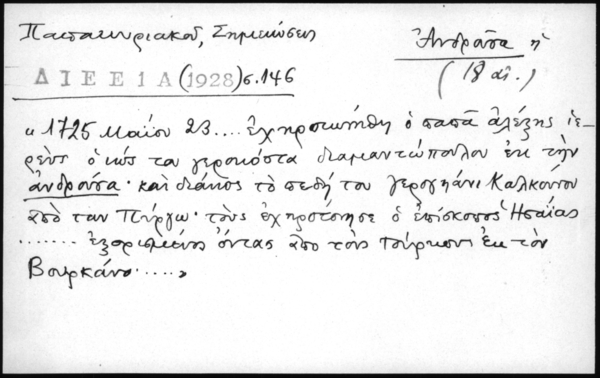 Παπακυριακού, Σημειώσεις
Ἀνδροῦσα ἡ
(18 αἰ.)
ΔΙΕΕ 1Α (1928) σ. 146
« 1725 Μαΐου 23.... ἐχηροτωνήθη ὁ παπᾶ ἀλέξης ἱε-
ρεὺς ὁ ὑὸς τα γεροκόστα διαμαντόπουλου ἐκ τὴν
ἀνδροῦσα· καὶ διάκος τὸ πεδὴ του γερογιάνι Καλκούνου
ἀπὸ ταν Πύργω· τοὺς ἐχηροτόνησε ὁ ἐπίσκοπος Ἠσαΐας
....... ἐξορισμένος ὄντας ἀπο τοὺς τούρκους ἐκ τὸν
Βουρκάνο.....»